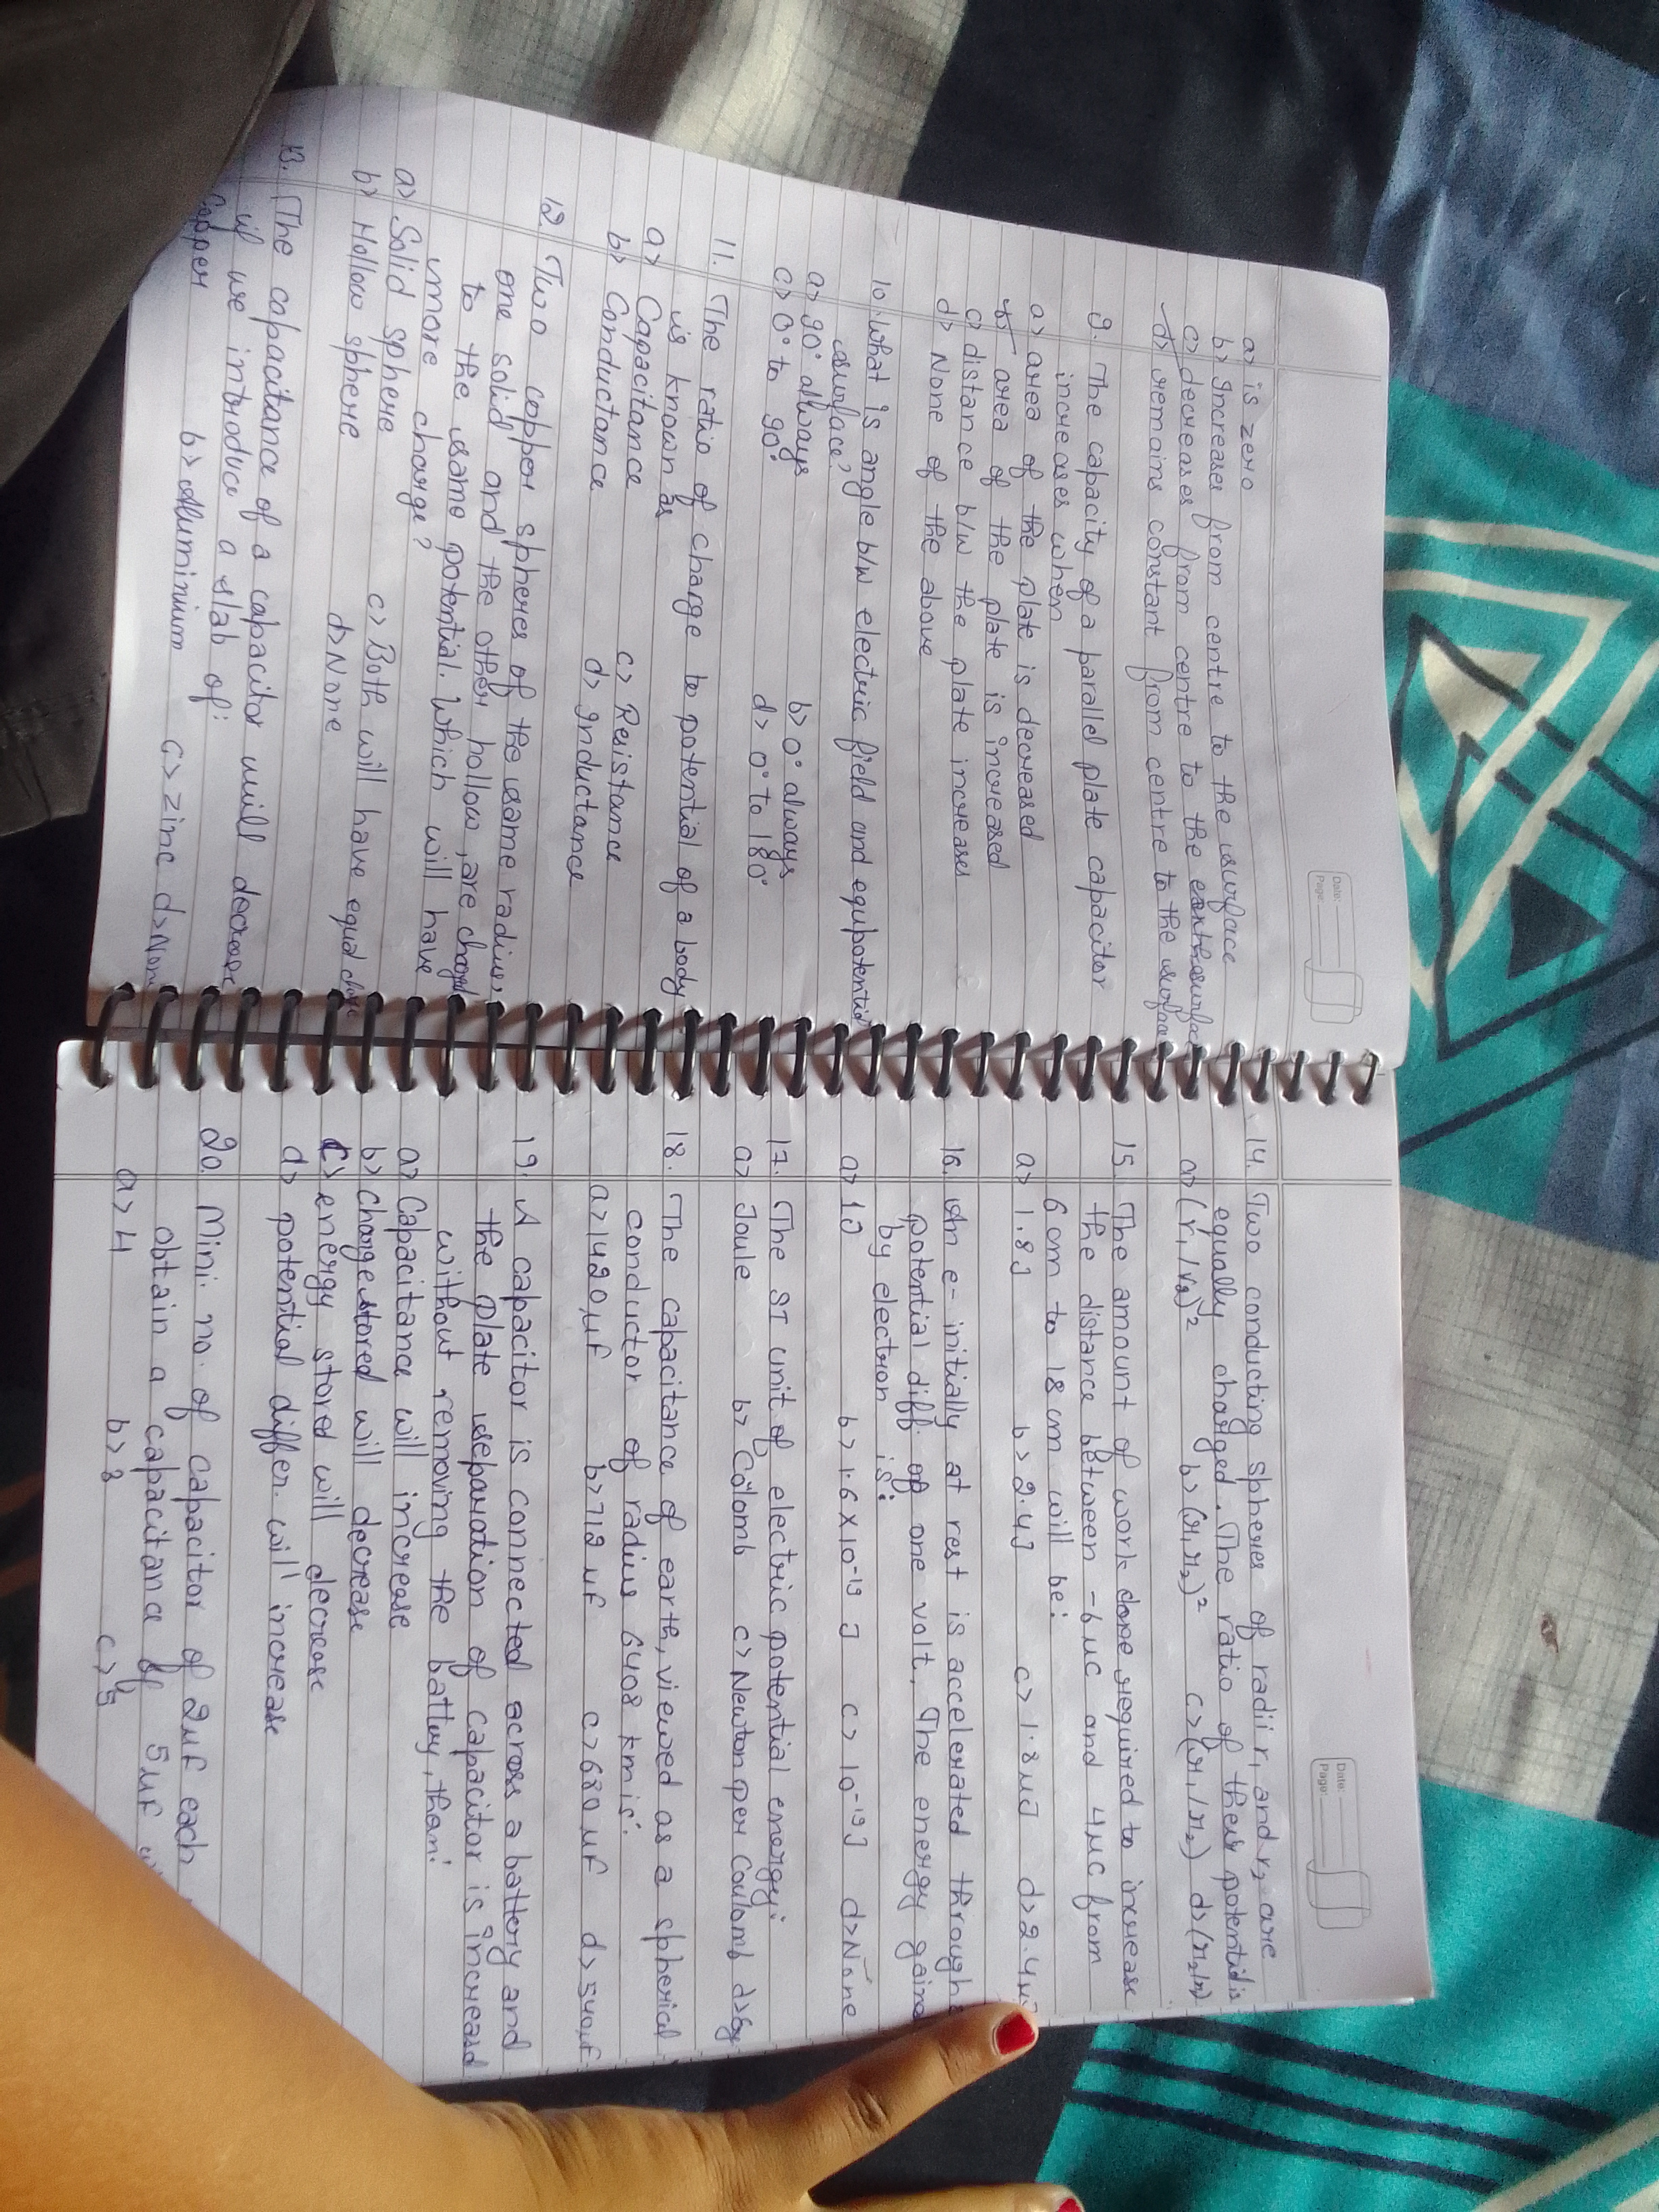 Date:
Page:
a> is zero
b> Increases from centre to the surface
c> decreases from centre to the earthsurface
d> remains constant from centre to the surface
9. The capacity of a parallel plate capacitor
increases when
a> area of the plate is decreased
b> area of the plate is increased
c> distance b/w the plate increases
d> None of the above
10. what is angle b/w electric field and equipotential
surface?
a> 90° always b> 0° always
c> 0° to 90° d> 0° to 180°
11. The ratio of charge to potential of a body
is known as
a> Capacitance c> Resistance
b> Conductance d> Inductance
12. Two copper spheres of the same radius,
one solid and the other hollow, are charged
to the same potential. Which will have
more charge?
a> Solid sphere c> Both will have equal charge
b> Hollow sphere d> None
13. The capacitance of a capacitor will decrease
if we introduce a slab of:
Copper b> Aluminium c> zinc d> None
Date:
Page:
14. Two conducting spheres of radii r₁ and r₂ are
equally charged. The ratio of their potential is
a> (r₁/r₂)² b> (r₁r₂)² c> (r₁/r₂) d> (r₂/r₁)
15. The amount of work done required to increase
the distance between -6μc and 4μc from
6cm to 18cm will be:
a> 1.8J b> 2.4J c> 1.8μJ d> 2.4μJ
16. An e- initially at rest is accelerated through
potential diff. of one volt. The energy gained
by electron is:
a> 1J b> 1.6 x 10⁻¹⁹ J c> 10⁻¹⁹J d> None
17. The SI unit of electric potential energy:
a> Joule b> Colomb c> Newton per coulomb d>
18. The capacitance of earth, viewed as a spherical
conductor of radius 6408 km is:
a> 1420μf b> 712μf c> 680μf d> 540μf
19. A capacitor is connected across a battery and
the plate separation of capacitor is increased
without removing the battery, than:
a> Capacitance will increase
b> Charge stored will decrease
c> energy stored will decrease
d> potential differ. will increase
20. Mini. no. of capacitor of 2μf each
obtain a capacitance of 5μf
a> 4 b> 3 c> 5